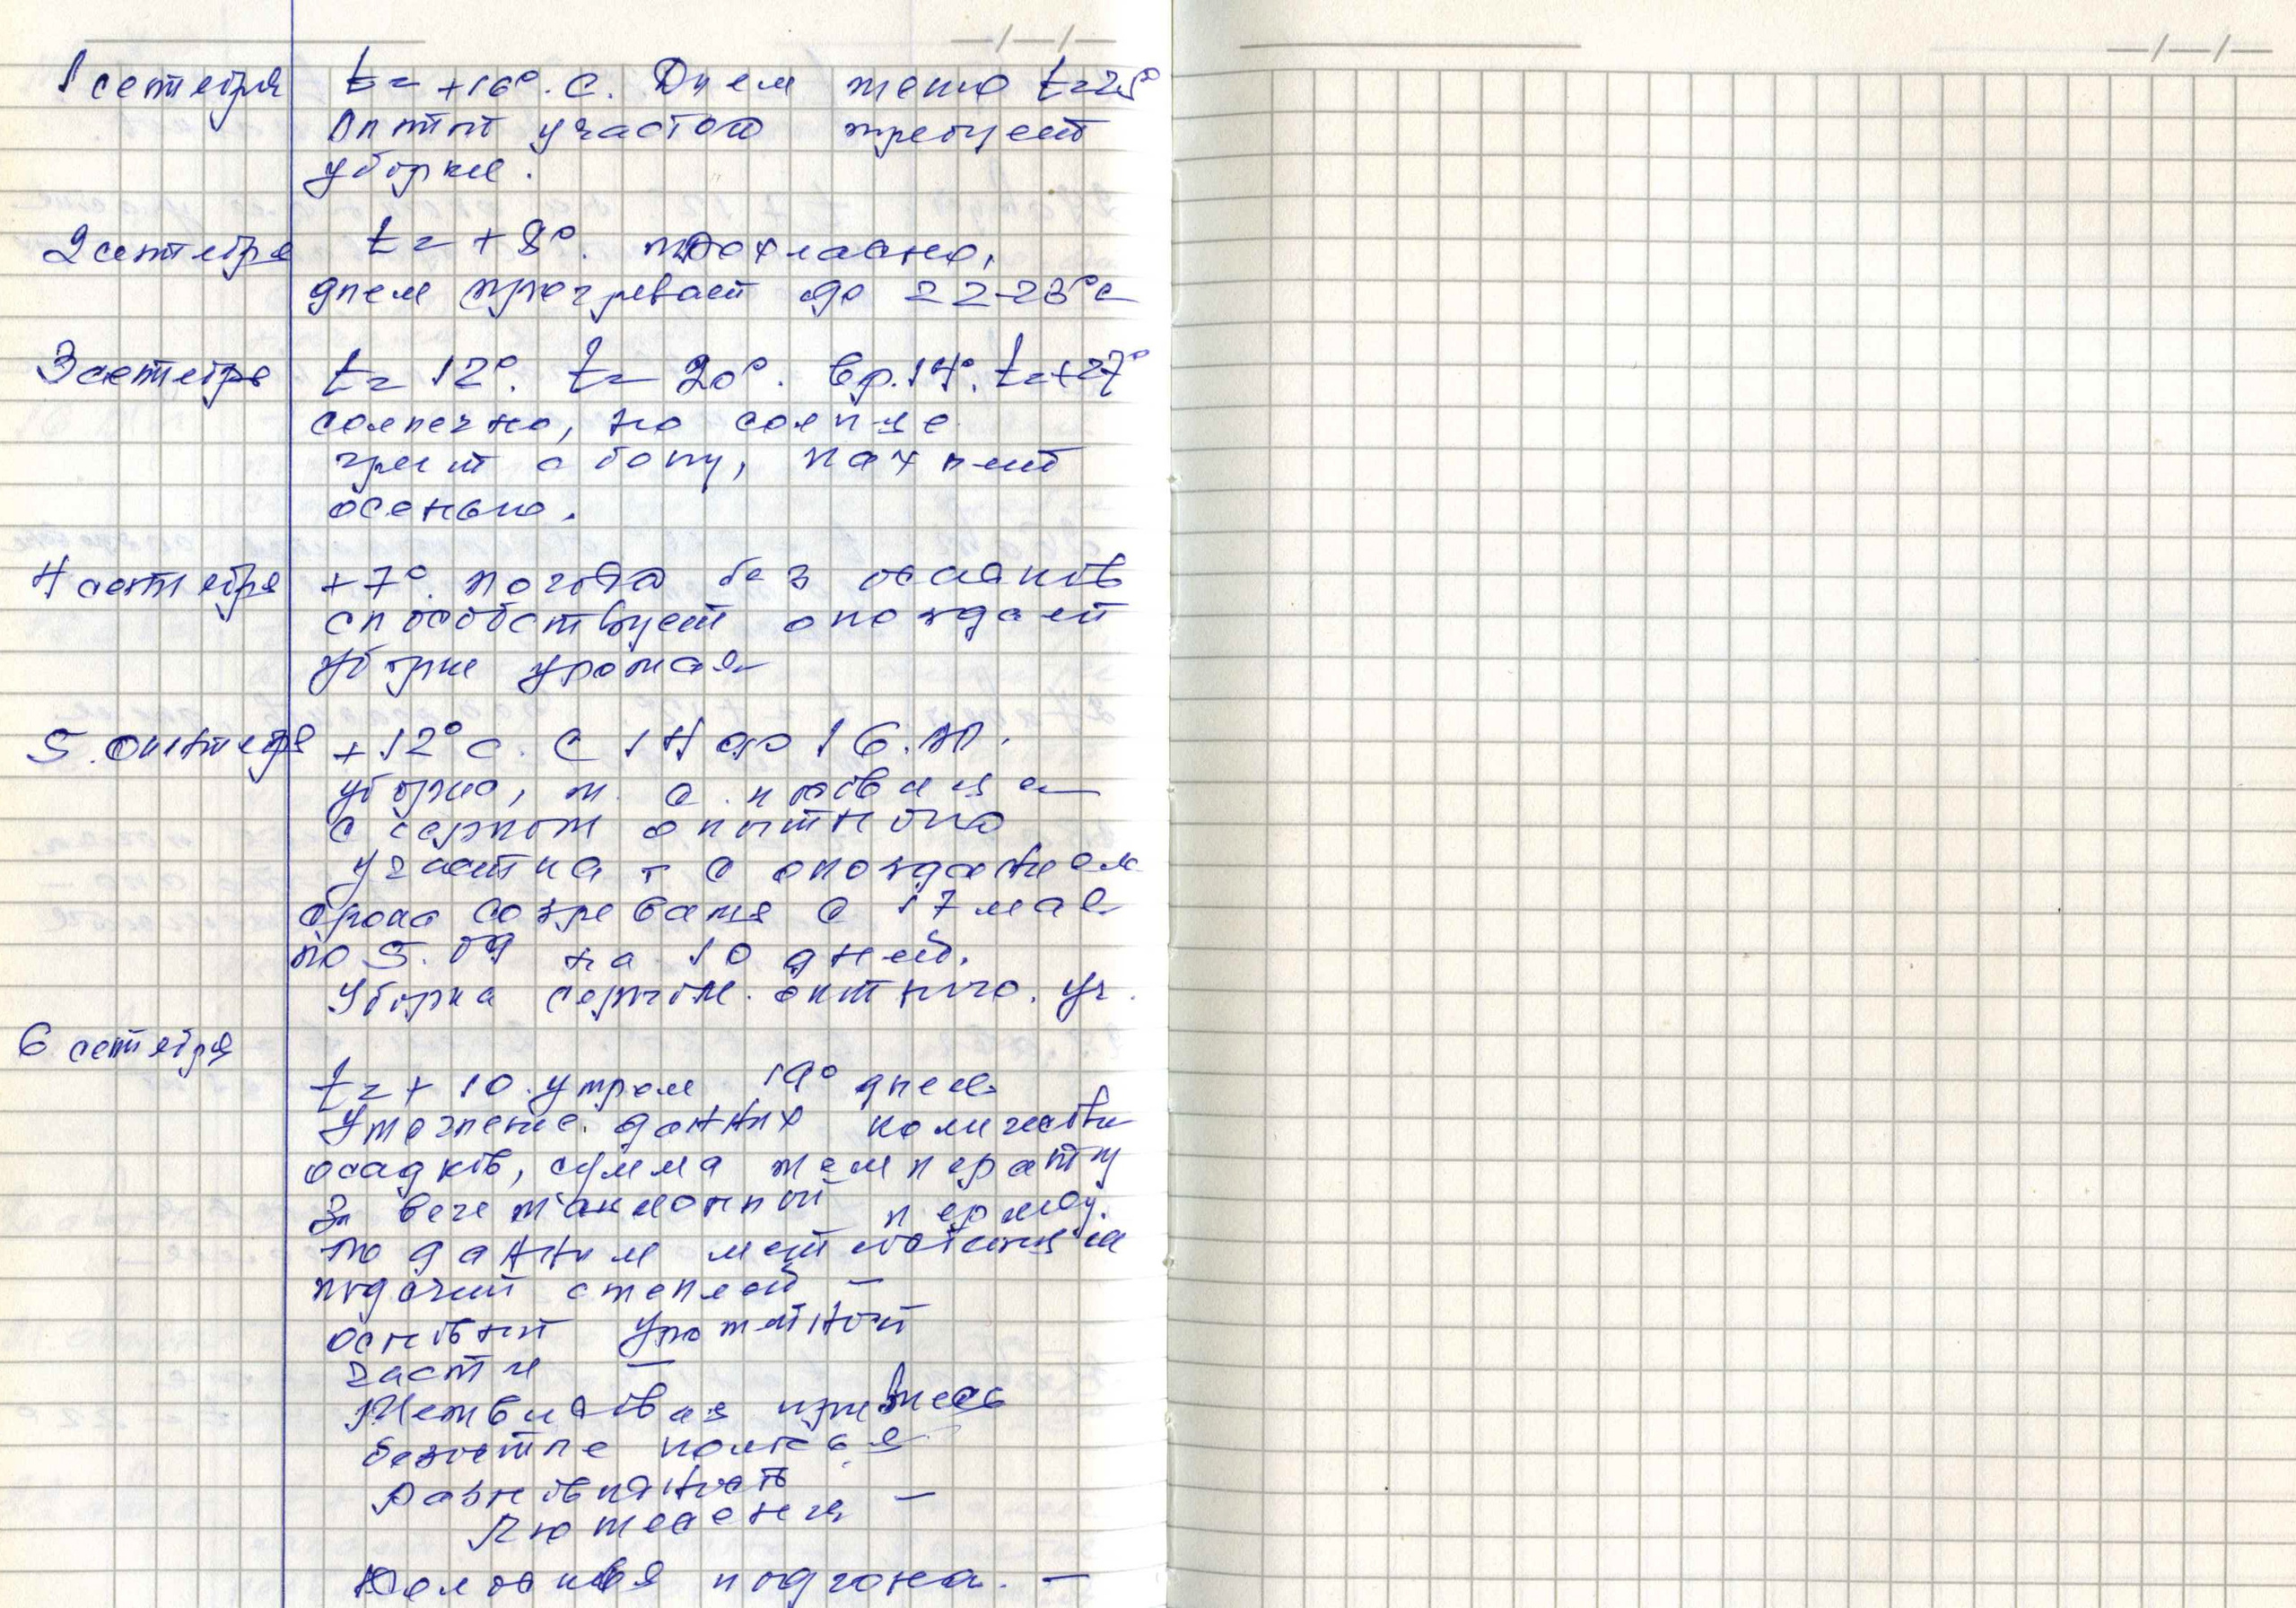 1 сентября t = +16°. С. Днем тепло t=25°
Опытн участок требует
уборки.
2 сентября t = +8°. прохладно,
днем прогревает до 22-23°с
3 сентября t = 12°. t = 20°. вр. 14°. t=+27°
солнечно, но солнце
греет с боку, пахнет
осенью.
4 сентября +7°. погода без осадков
способствует опоздает
уборке урожая
5. +12°с. С 14 до 16.
уборка, т.
с серпом опытного
участка с опозданием
срока созревания с 17 мая
по 5.09 на 10 дней.
Уборка серпом. опытного. уч.
6 сентября
t = + 10. утром 19° днем
Уточнение. данных количества
осадков, сумма температур
За вегетационный период.
По данным метеостанция
подсчит стеблей –
основный
части –
колосья
Разновидность –
Лютесценц
Колосья подгона. –